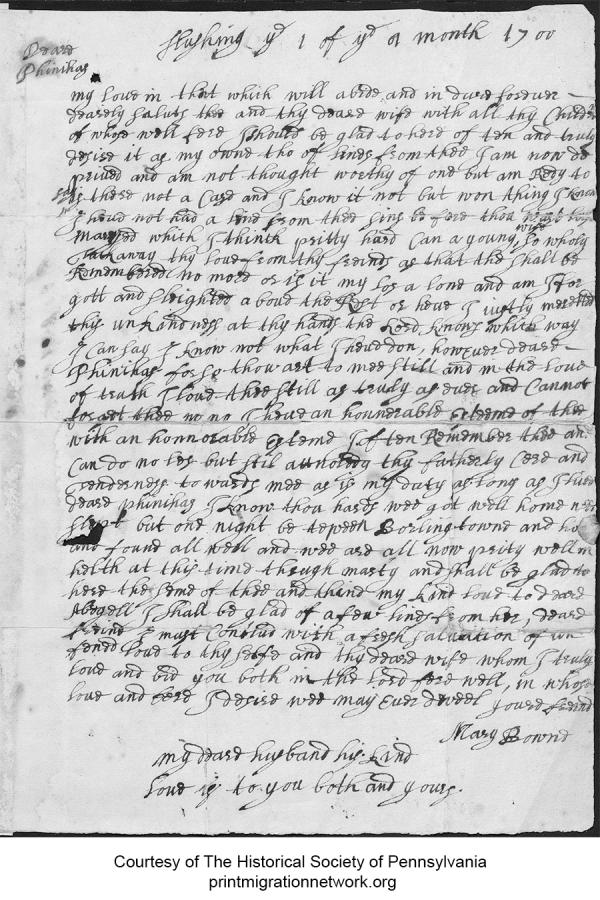 flushing yᵉ 1 of yᵉ a month 1700
Deare
Phinihas
my love in that which will abide and in dure forever
dearely saluts thee and thy deare wife with all thy Childr
of whose well fere I should be glad to here of ten and truly
desire it as my owne tho of lines from thee I am now de
prived and am not thought worthy of one but am Redy to
is there not a Case and I know it not but won thing I know
I have not had a line from thee sins be fore thou
Maryed which I think pritty hard Can a young wife so wholy
Take away thy love from thy freinds as that the shall be
Remembered no more or is it my los a lone and am I for
gott and sleighted above the Rest or heve I justly meretted
this unkandness at thy hands the Lord knows which way
I Can say I know not what I heve don, however deare
Phinihas for so thow art to mee still and in the love
of truth I love thee still as truly as ever and Cannot
forget thee no no I heve an honnerable esteeme of thee
with an honnorable esteme I often Remember thee and
Can do no les but stil acknoledg thy fatherly Cere and
Tenderness to wards mee as is my duty as long as I live
deare Phinihas I know thou hards wee got well home
slept but one night be tween Borlingtowne and ho
and found all well and wee are all now prity well in
helth at this time through marcy and shall be glad to
here the seme of thee and thine my kind love to deare
Abegell I shall be glad of a few lines from her, deare
freind I must Conclud with a fresh salutation of un
fened love to thy selfe and thy deare wife whom I truly
love and bid you both in the lord fere well, in whose
love and I desire wee may Ever dweel youre freind
Mary Bowne
my deare husband his kind
love is to you both and yours.
Courtesy of The Historical Society of Pennsylvania
printmigrationnetwork.org